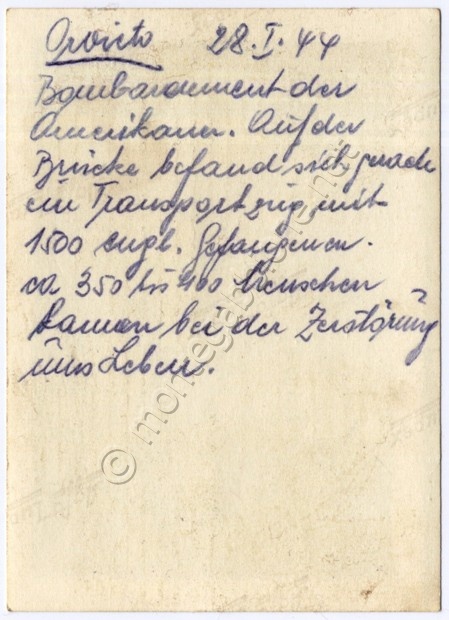 Orvieto 28.I.44
Bombardement der
Amerikaner. Auf der
Brücke befand sich gerade
ein Transportzug mit
1500 engl. Gefangenen.
ca 350 bis 400 Menschen
kamen bei der Zerstörung
ums Leben.
© montegabbione.net